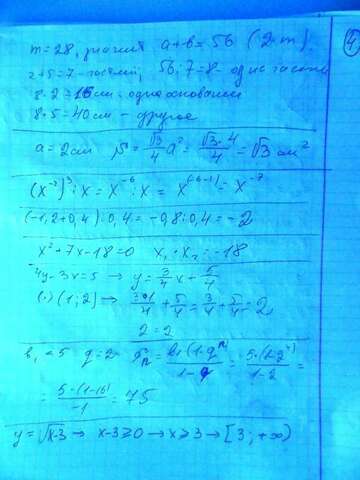 4
m=28, значит a+b=56 (2·m).
2+5=7 - частей; 56:7=8 - одна часть
8·2=16см - одно основание
8·5=40см - другое
a=2см S=√3/4 a²=√3·4/4=√3 см²
(x⁻²)³:x=x⁻⁶:x=x⁽⁻⁶⁻¹⁾=x⁻⁷
(-1,2+0,4):0,4=-0,8:0,4=-2
x²+7x-18=0 x₁·x₂=-18
4y-3x=5 → y=3/4 x+5/4
(·)(1;2) → 3·1/4+5/4=3/4+5/4=2
2=2
b₁=5 q=2 Sₙ=b₁(1-qⁿ)/1-q=5·(1-2⁴)/1-2=
=5·(1-16)/-1=75
y=√x-3 → x-3≥0 → x≥3 → [3;+∞)